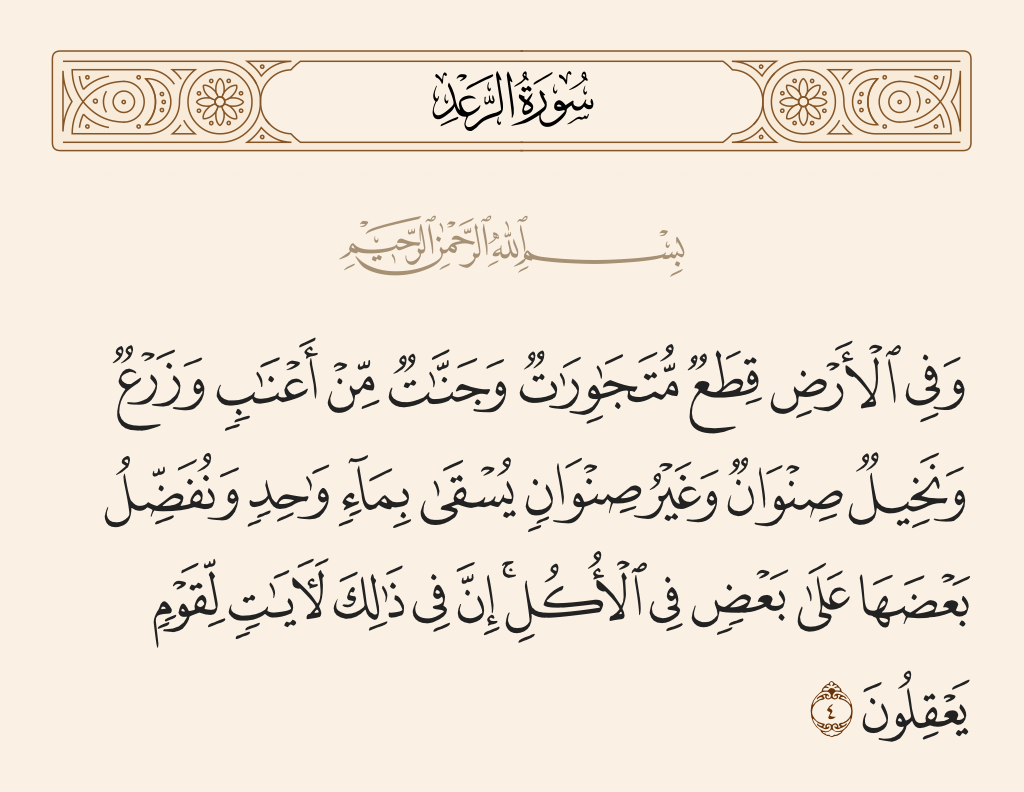 سُورَةُ الرَّعْدِ
بِسْمِ ٱللَّهِ ٱلرَّحْمَٰنِ ٱلرَّحِيمِ
وَفِى ٱلْأَرْضِ قِطَعٌ مُّتَجَٰوِرَٰتٌ وَجَنَّٰتٌ مِّنْ أَعْنَٰبٍ وَزَرْعٌ
وَنَخِيلٌ صِنْوَانٌ وَغَيْرُ صِنْوَانٍ يُسْقَىٰ بِمَآءٍ وَٰحِدٍ وَنُفَضِّلُ
بَعْضَهَا عَلَىٰ بَعْضٍ فِى ٱلْأُكُلِ ۚ إِنَّ فِى ذَٰلِكَ لَـَٔايَٰتٍ لِّقَوْمٍ
يَعْقِلُونَ ٤